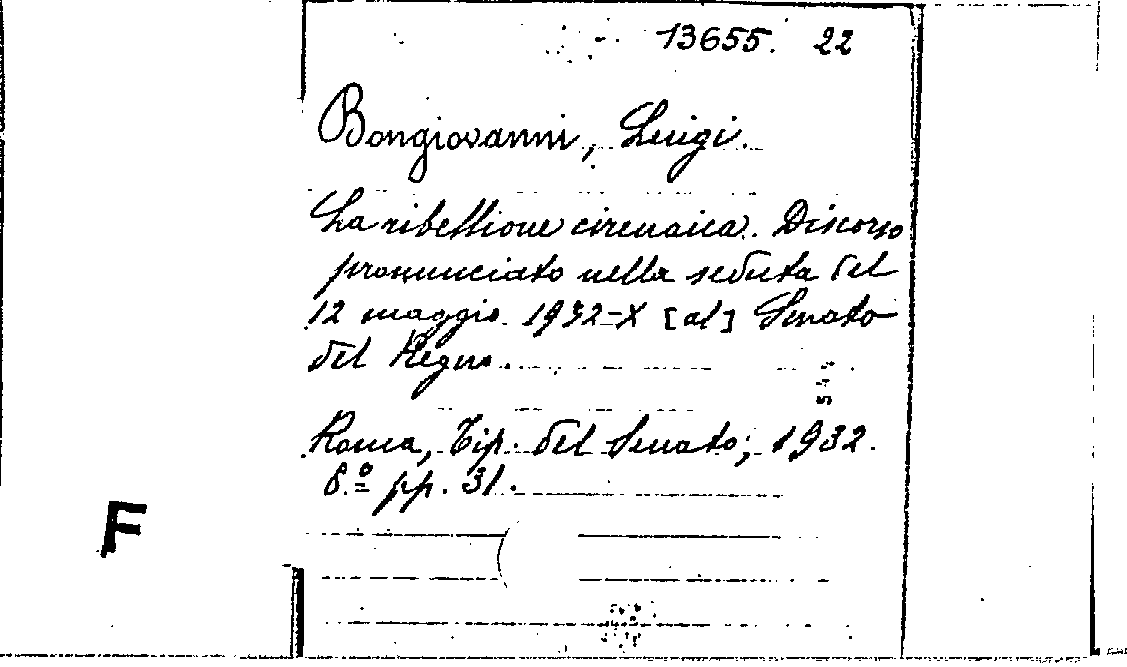 13655. 22
Bongiovanni, Luigi.
La ribellione cirenaica. Discorso
pronunciato nella seduta del
12 maggio 1932-X [al] Senato
del Regno.
Roma, Tip. del Senato, 1932.
8.º pp. 31.
F